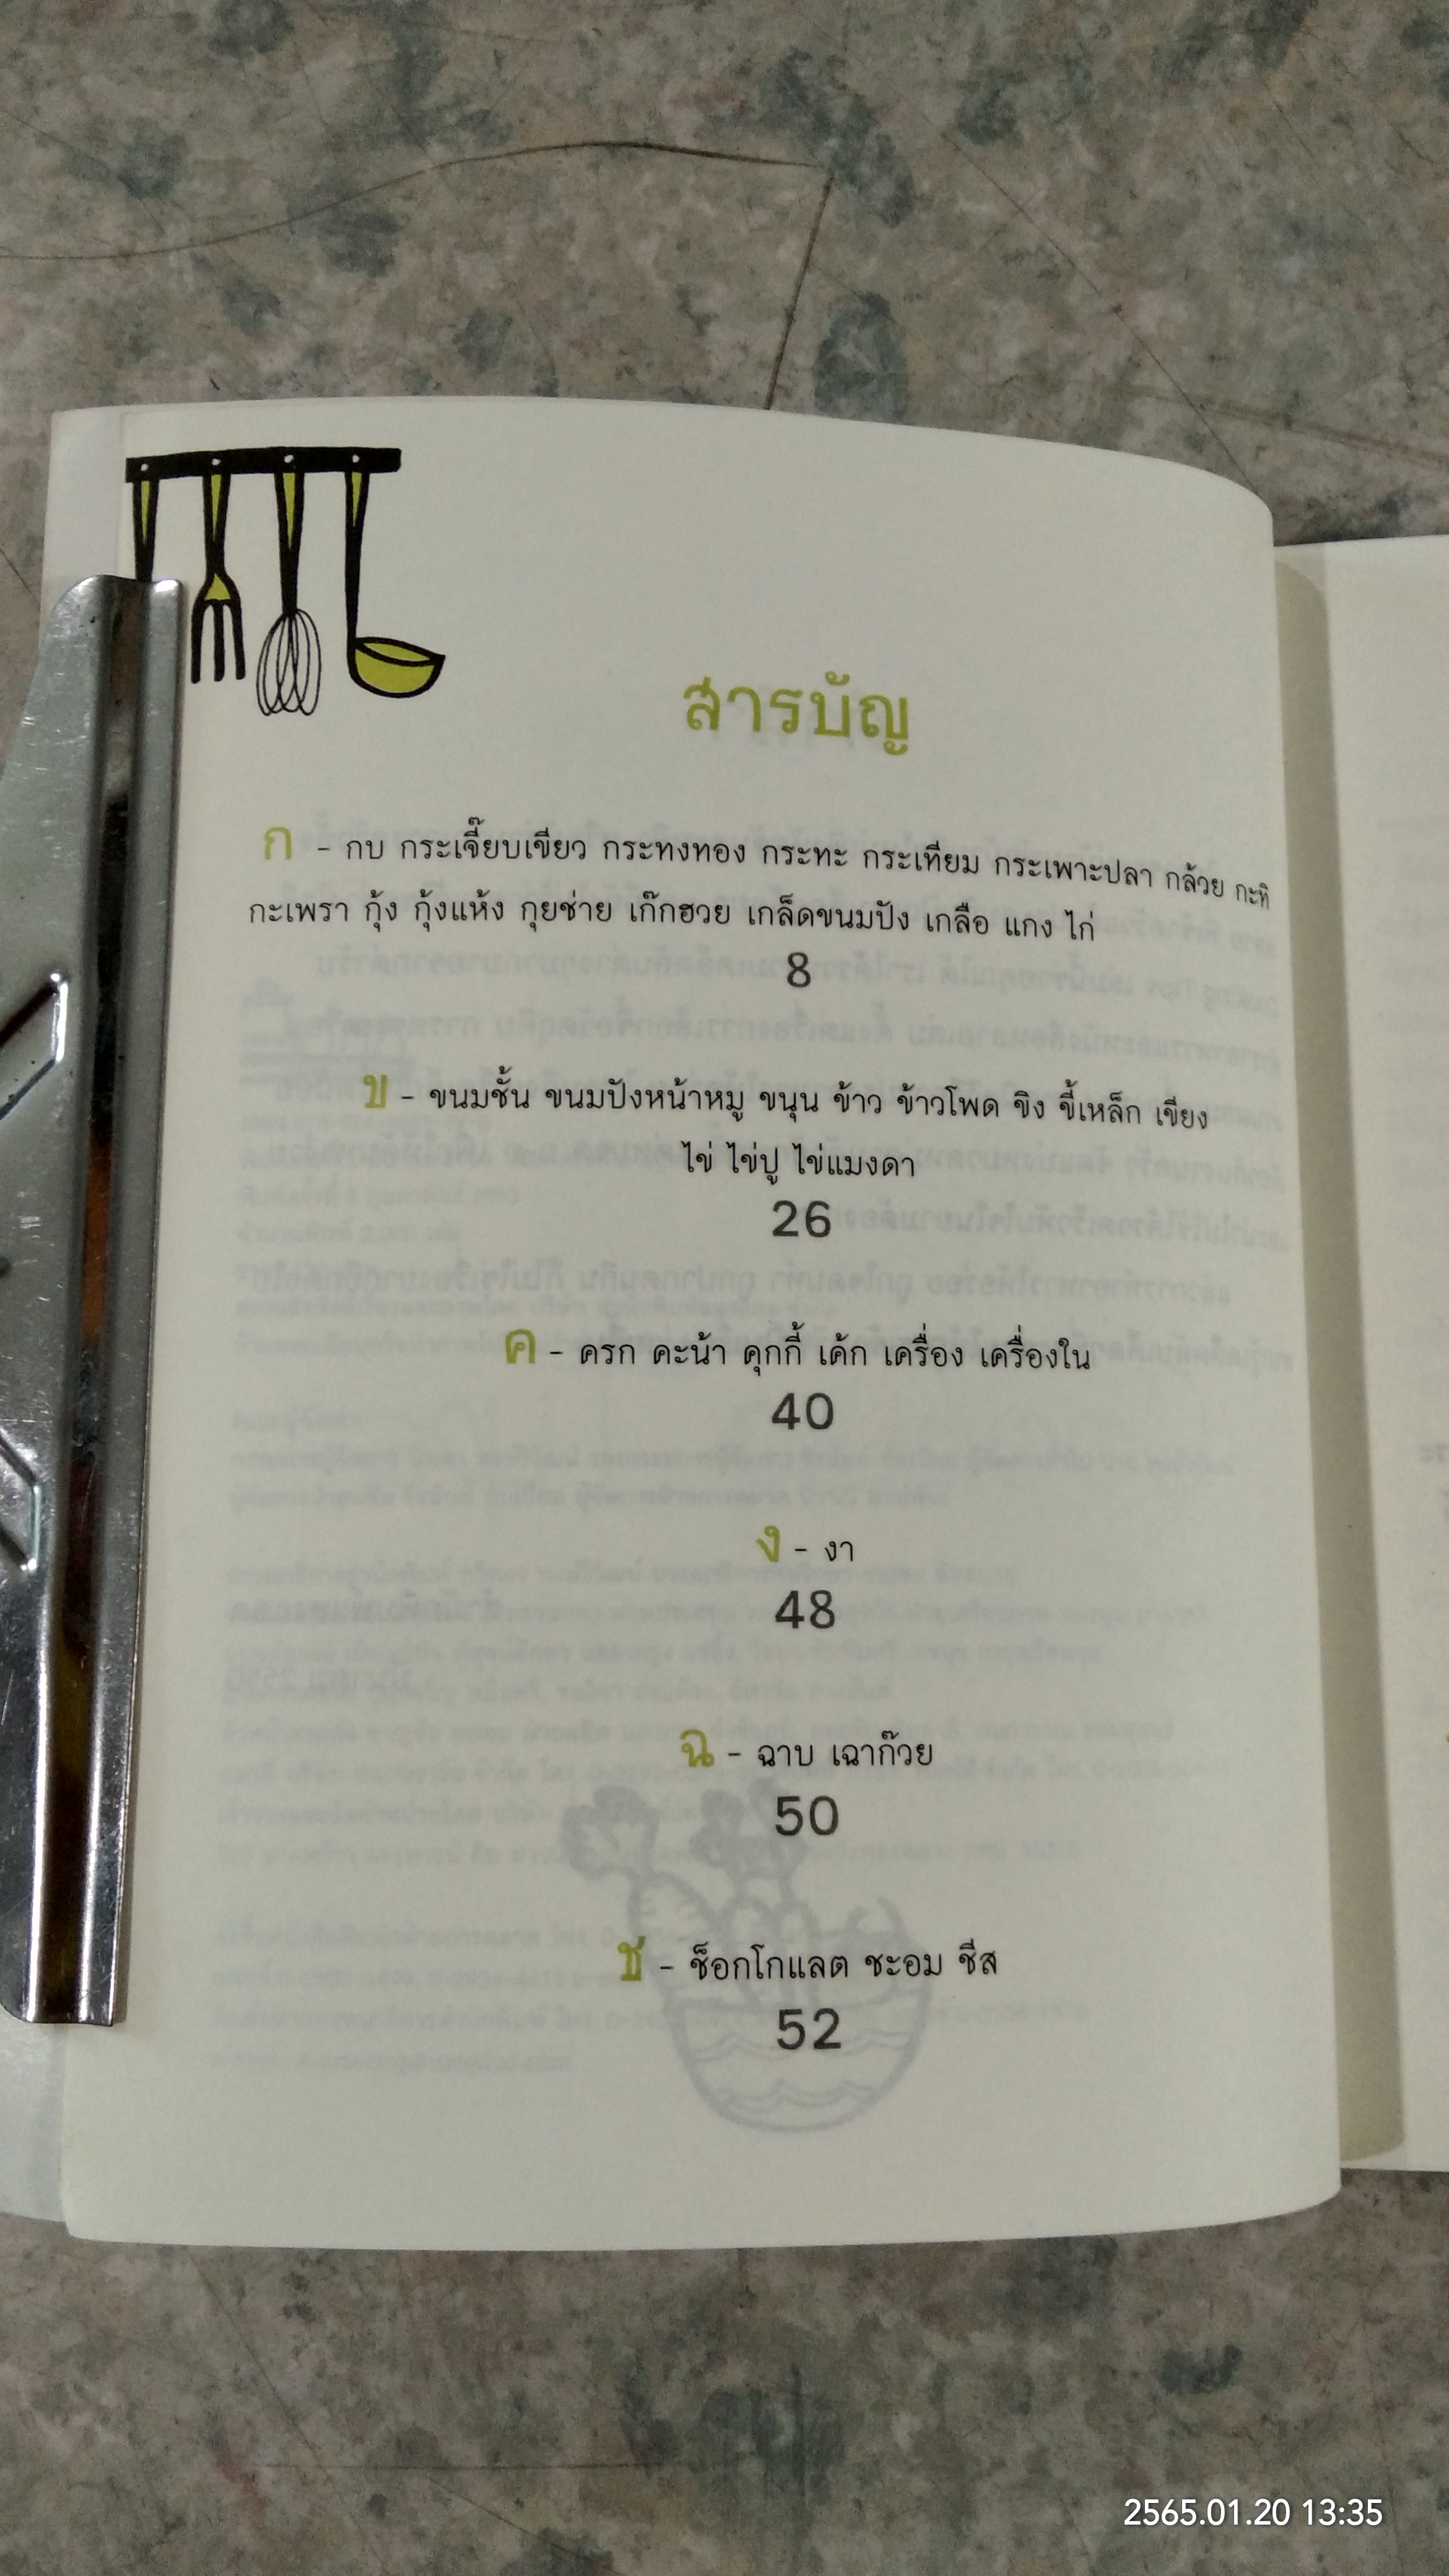 สารบัญ
ก - กบ กระเจี๊ยบเขียว กระทงทอง กระทะ กระเทียม กระเพาะปลา กล้วย กะทิ
กะเพรา กุ้ง กุ้งแห้ง กุยช่าย เก๊กฮวย เกล็ดขนมปัง เกลือ แกง ไก่
8
ข - ขนมชั้น ขนมปังหน้าหมู ขนุน ข้าว ข้าวโพด ขิง ขี้เหล็ก เขียง
ไข่ ไข่ปู ไข่แมงดา
26
ค - ครก คะน้า คุกกี้ เค้ก เครื่อง เครื่องใน
40
ง - งา
48
ฉ - ฉาบ เฉาก๊วย
50
ช - ช็อกโกแลต ชะอม ชีส
52
2565.01.20 13:35